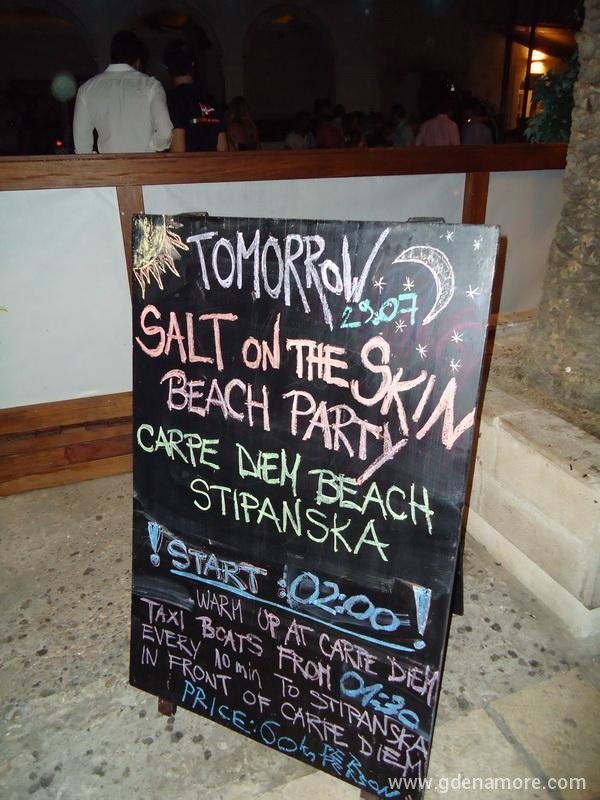 TOMORROW
29.07
SALT ON THE SKIN
BEACH PARTY
CARPE DIEM BEACH
STIPANSKA
! START :02:00 !
WARM UP AT CARPE DIEM
TAXI BOATS FROM 01:30
EVERY 10 min TO STIPANSKA
IN FRONT OF CARPE DIEM
PRICE: 60k PER
PERSON
www.gdenamore.com